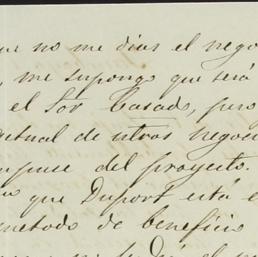 me dias el nego
, me supongo que será
el Sor Casado, pero
de otros negoci
del proyecto.
que Duport está e
metodo de beneficio